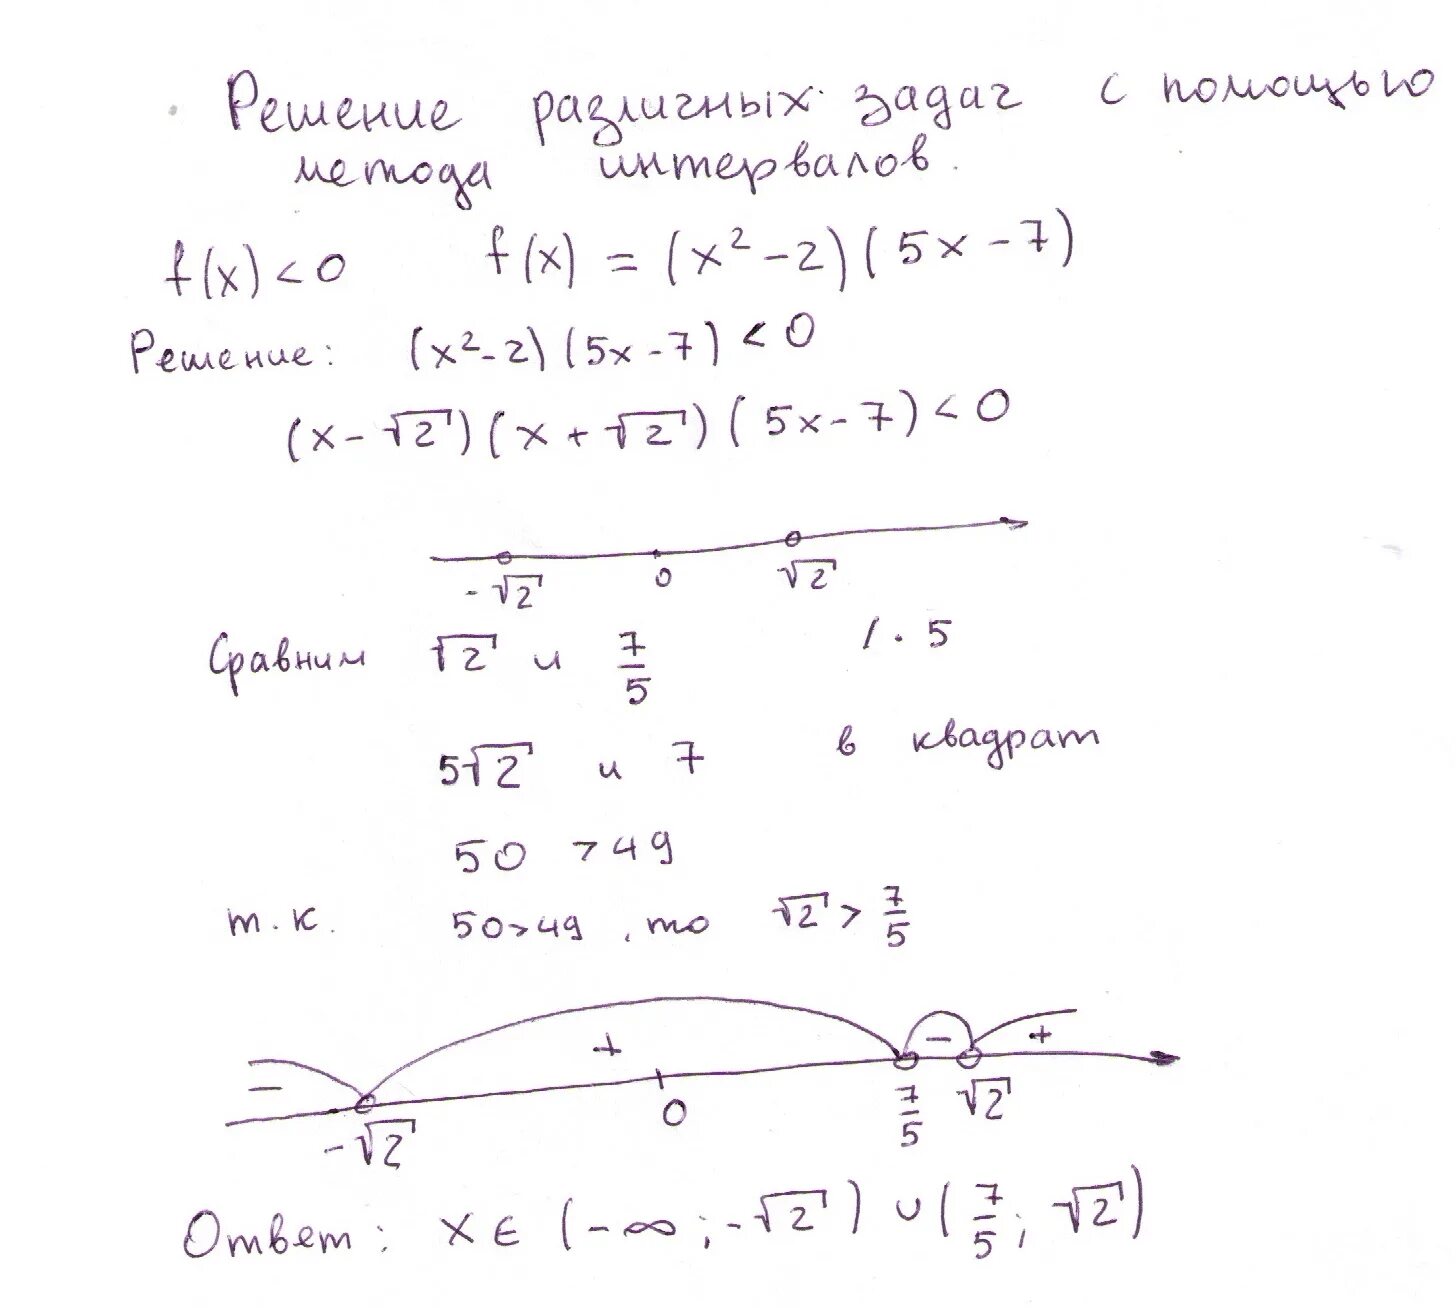 Решение различных задач с помощью
метода интервалов.
f(x) < 0 f(x) = (x² - 2)(5x - 7)
Решение: (x² - 2)(5x - 7) < 0
(x - √2)(x + √2)(5x - 7) < 0
-√2 0 √2
Сравним √2 и 7/5 / · 5
5√2 и 7 в квадрат
50 > 49
т.к. 50 > 49, то √2 > 7/5
- + - +
-√2 0 7/5 √2
Ответ: x ∈ (-∞; -√2) ∪ (7/5; √2)